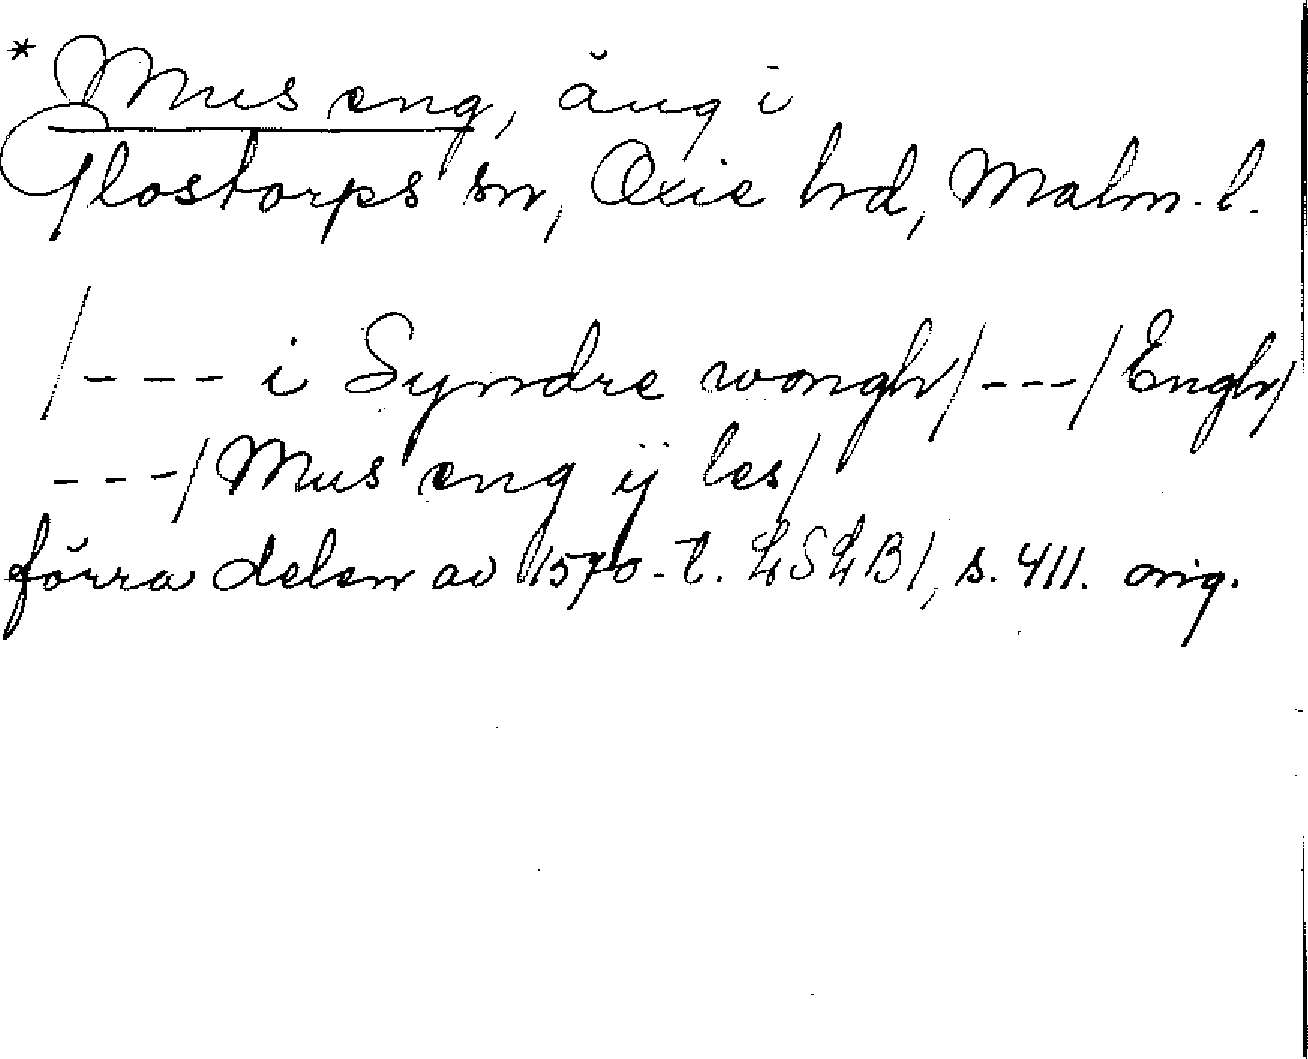 * Mus eng, äng i
Glostorps sn, Oxie hd, Malm. l.
/--- i Syndre wongh/---/Engh/
---/Mus eng ij les/
förra delen av 1570-t. LSLB1, s. 411. orig.